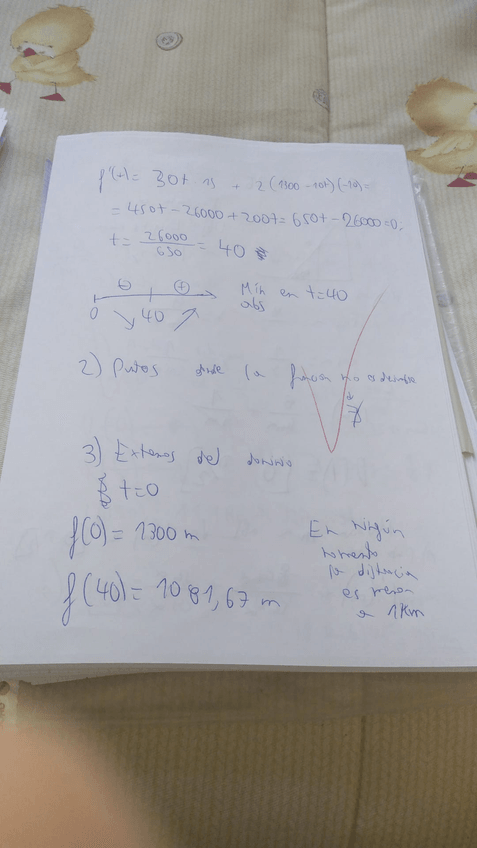 f'(t) = 30t · 15 + 2(1300 - 10t)(-10) =
= 450t - 26000 + 200t = 650t - 26000 = 0;
t = 26000/650 = 40
⊖ ⊕ Mín en t=40
abs
0 40
2) Putos dnde la función no es derivable
∄
3) Extremos del dominio
t=0
f(0) = 1300 m
f(40) = 1081,67 m
En ningún
momento
la distancia
es menor
a 1Km